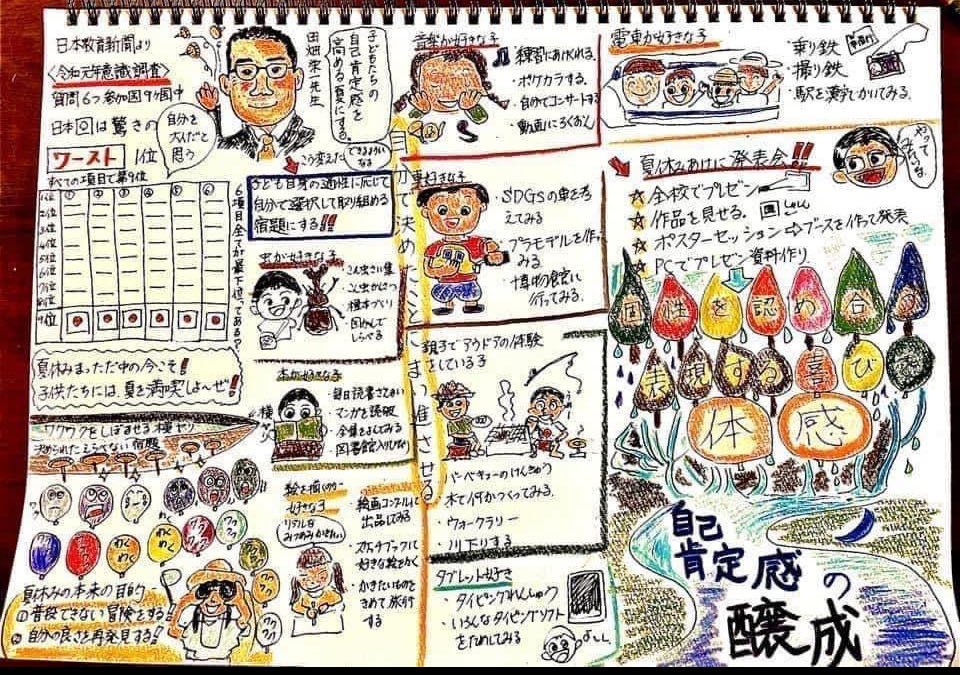 日本教育新聞より
〈令和元年意識調査〉
質問6つ参加国9ヶ国中
日本は驚きの
ワースト1位
自分を
大人だと
思う
すべての項目で第9位
① ② ③ ④ ⑤ ⑥
1位
2位
3位
4位
5位
6位
7位
8位
9位
6項目全てが最下位ってある?
夏休みまっただ中の今こそ!
子供たちには、夏を満喫しよ〜ぜ!!
ワクワクをしぼませる横ヤリ
決められたつまらない宿題
わく
わく
ワク
ワク
夏休みの本来の目的
①普段できない冒険をする!
②自分の良さを再発見する!!
田畑栄一先生
子どもたちの
自己肯定感を
高める夏にする。
こう変えた
できるようになる
子ども自身の適性に応じて
自分で選択して取り組める
宿題にする!!
虫が好きな子
・こん虫さい集
・標本づくり
・図かんで
しらべる
本が好きな子
・毎日読書ざんまい
・マンガを読破
・全集をよんでみる
・図書館入りびたり
絵を描くのが
好きな子
絵画コンクールに
出品してみる
・スケッチブックに
好きな絵をかく
・かきたいものを
きめて旅行
する
自分で決めたことをまい進させる
音楽が好きな子
・練習にあけくれる
・ボケカラする。
・自宅でコンサートする
・動画にろくおん
車好きな子
・SDGSの車を考
えてみる
・プラモデルを作っ
てみる
・博物館に
行ってみる。
親子でアウトドアの体験
をしている子
・バーベキューのけんきゅう
・木で何かつくってみる
・ウォークラリー
・川下りする
タブレット好き
・タイピングれんしゅう
・いろんなタイピングソフト
をためしてみる
電車が好きな子
・乗り鉄
・撮り鉄
・駅を漢字でかいてみる。
夏休みあけに発表会!!
☆全校でプレゼン
☆作品を見せる。
☆ポスターセッション⇨ブースを作って発表
☆PCでプレゼン資料作り
個性を認め合う
表現する喜び
体感
自己
肯定感の
醸成